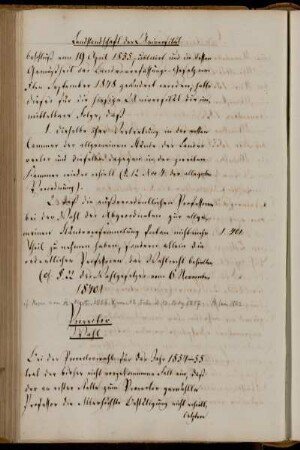 Landstandschaft der Universität
beschluß vom 19 April 1855, publicirt und in dessen
Gemäßheit das Landesverfassungs-Gesetz vom
5ten September 1848 geändert worden, hatte
dieses für die hiesige Universität die un-
mittelbare Folge, daß
1. dieselbe ihre Vertretung in der ersten
Cammer der allgemeinen Stände des Landes
verlor und dieselbe dagegen in der zweiten
Cammer wieder erhielt (§. 12 No 4 der allegirten
Verordnung).
2. daß die außerordentlichen Professoren
bei der Wahl des Abgeordneten zur allge-
meinen Ständeversammlung ferner nicht mehr
Theil zu nehmen haben, sondern allein die
ordentlichen Professoren das Wahlrecht behalten
(cf. §. 22 des Wahlgesetzes vom 6 November
1840)
Prorector
Wahl
Bei der Prorectorwahl für das Jahr 1854–55
trat der bisher nicht vorgekommene Fall ein, daß
der an erster Stelle zum Prorector gewählte
Professor die Allerhöchste Bestätigung nicht erhielt,